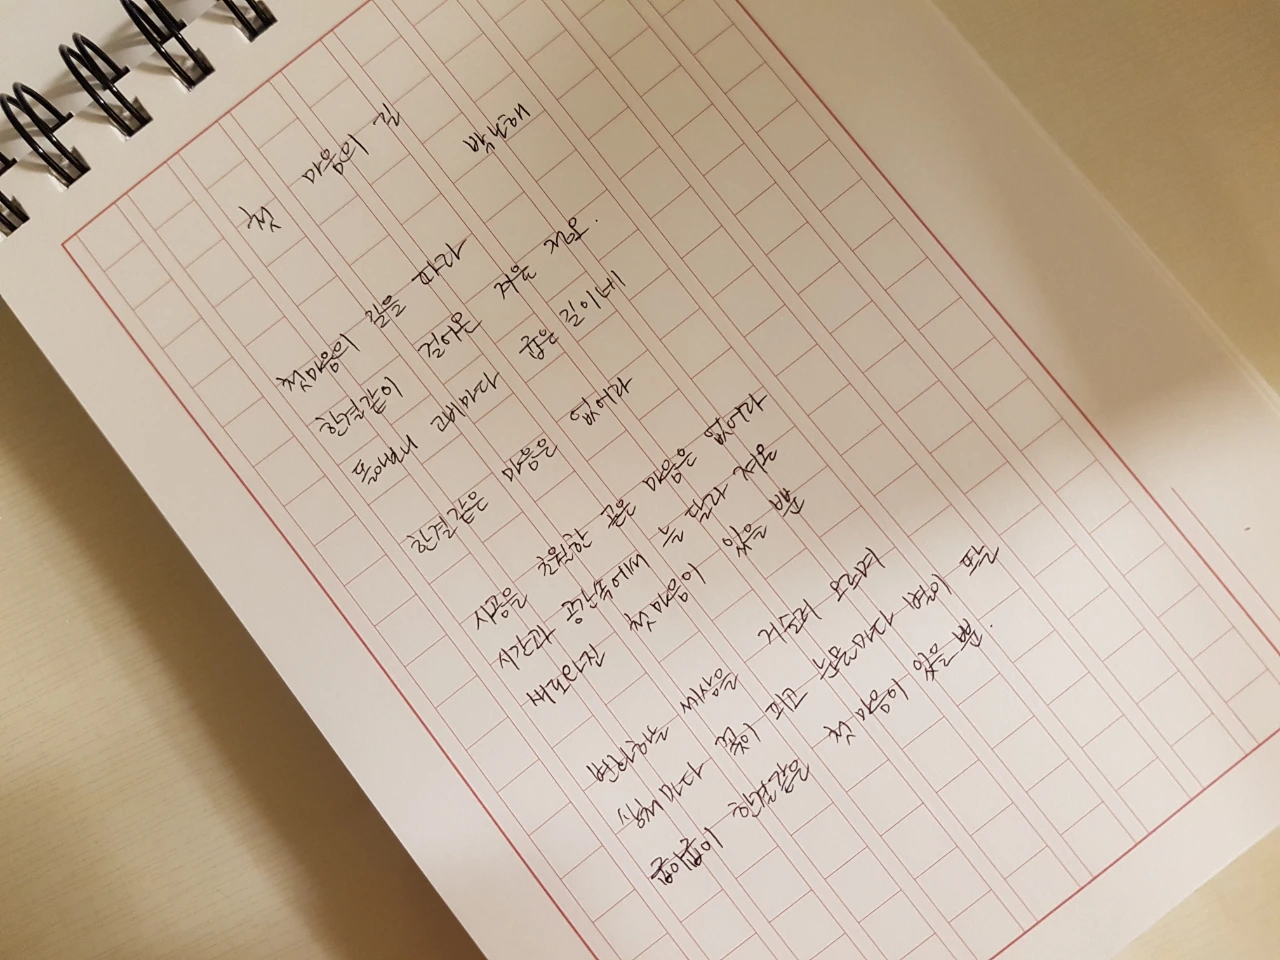 첫 마음의 길
박노해
첫마음의 길을 따라
한결같이 걸어온 겨울 정오.
돌아보니 고비마다 굽은 길이네
한결같은 마음은 없어라
시공을 초월한 곧은 마음은 없어라
시간과 공간속에서 늘 달라 져온
새로와진 첫마음이 있을 뿐
변화하는 세상을 거슬러 오르며
상처마다 꽃이 피고 눈물마다 별이
굽이굽이 한결같은 첫마음이 있을 뿐.